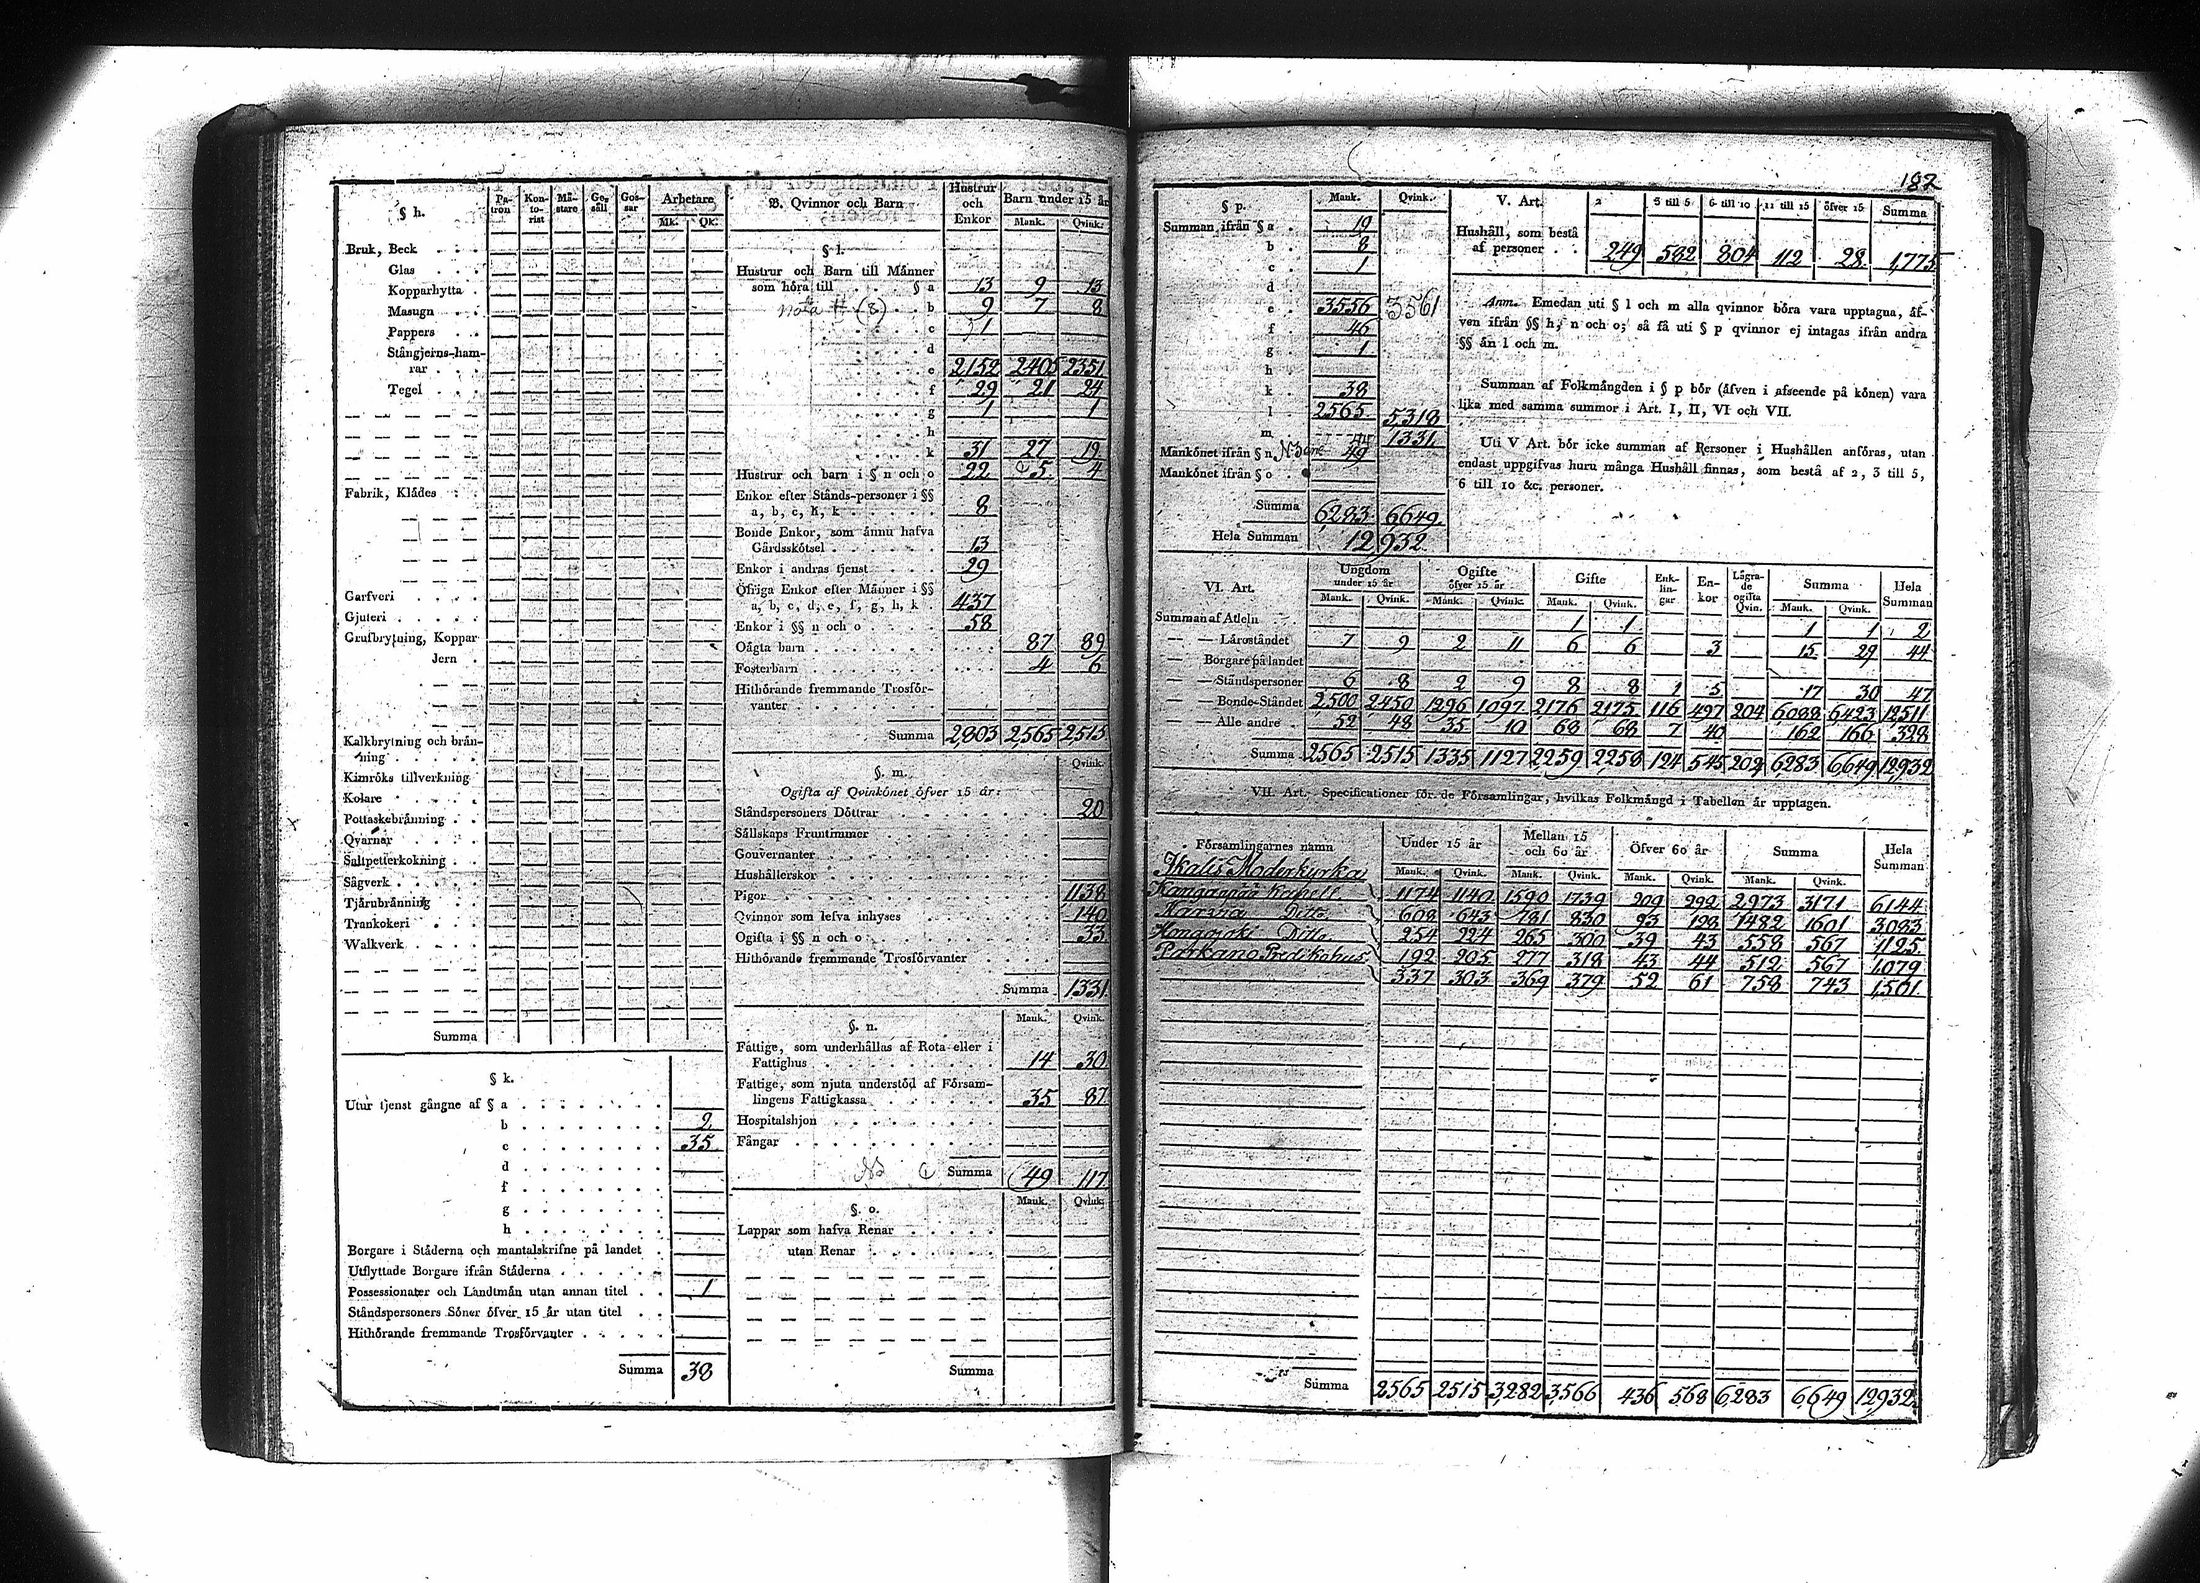 § h. Pa-tron Kon-to-rist Mä-stare Ge-säll Gos-sar Arbetare Mk. Qk.
Bruk, Beck
Glas
Kopparhytta
Masugn
Pappers
Stångjerns-ham-
rar
Tegel
Fabrik, Klädes
Garfveri
Gjuteri
Grufbrytning, Koppar
Jern
Kalkbrytning och brän-
ning
Kimröks tillverkning
Kolare
Pottaskebränning
Qvarnar
Saltpetterkokning
Sågverk
Tjärubränning
Trankokeri
Walkverk
Summa
§ k.
Utur tjenst gångne af § a
b 2
c 35
d
f
g
h
Borgare i Städerna och mantalskrifne på landet
Utflyttade Borgare ifrån Städerna
Possessionater och Landtmän utan annan titel 1
Ståndspersoners Söner öfver 15 år utan titel
Hithörande fremmande Trosförvanter
Summa 38
B. Qvinnor och Barn Hustrur och Enkor Barn under 15 år Mank. Qvink.
§ l.
Hustrur och Barn till Männer
som höra till § a 13 9 13
nota # (8) b 9 7 8
c 1
d
e 2152 2405 2351
f 29 21 24
g 1 1
h
k 31 27 19
Hustrur och barn i § n och o 22 5 4
Enkor efter Stånds-personer i §§
a, b, c, h, k 8
Bonde Enkor, som ännu hafva
Gårdsskötsel 13
Enkor i andras tjenst 29
Öfriga Enkor efter Männer i §§
a, b, c, d, e, f, g, h, k 437
Enkor i §§ n och o 58
Oägta barn 87 89
Fosterbarn 4 6
Hithörande fremmande Trosför-
vanter
Summa 2,803 2,565 2,515
§. m. Qvink.
Ogifta af Qvinkönet öfver 15 år:
Ståndspersoners Döttrar 20
Sällskaps Fruntimmer
Gouvernanter
Hushållerskor
Pigor 1138
Qvinnor som lefva inhyses 140
Ogifta i §§ n och o 33
Hithörande fremmande Trosförvanter
Summa 1331
§. n. Mank. Qvink.
Fattige, som underhållas af Rota eller i
Fattighus 14 30
Fattige, som njuta understöd af Försam-
lingens Fattigkassa 35 87
Hospitalshjon
Fångar
Summa 49 117
§. o. Mank. Qvink.
Lappar som hafva Renar
utan Renar
Summa
182
§ p. Mank. Qvink.
Summan ifrån § a 19
b 8
c 1
d
e 3556 3561
f 46
g 1
h
k 38
l 2565 5318
m 1331
Mankönet ifrån § n 49
Mankönet ifrån § o
Summa 6,283 6,649
Hela Summan 12,932
V. Art. 2 3 till 5 6 till 10 11 till 15 öfver 15 Summa
Hushåll, som bestå
af personer 249 582 804 112 28 1,775
Anm. Emedan uti § l och m alla qvinnor böra vara upptagna, äf-
ven ifrån §§ h, n och o; så få uti § p qvinnor ej intagas ifrån andra
§§ än l och m.
Summan af Folkmängden i § p bör (äfven i afseende på könen) vara
lika med samma summor i Art. I, II, VI och VII.
Uti V Art. bör icke summan af Personer i Hushållen anföras, utan
endast uppgifvas huru många Hushåll finnas, som bestå af 2, 3 till 5,
6 till 10 &c. personer.
VI. Art. Ungdom under 15 år Ogifte öfver 15 år Gifte Enk-lin-gar En-kor Lägra-de ogifta Qvin. Summa Hela Summan
Mank. Qvink. Mank. Qvink. Mank. Qvink. Mank. Qvink.
Summan af Adeln 1 1 1 1 2
— — Läroståndet 7 9 2 11 6 6 3 15 29 44
— — Borgare på landet
— — Ståndspersoner 6 8 2 9 8 8 1 5 17 30 47
— — Bonde-Ståndet 2500 2450 1296 1097 2176 2175 116 497 204 6088 6423 12511
— — Alle andre 52 48 35 10 68 68 7 40 162 166 328
Summa 2565 2515 1335 1127 2259 2258 124 545 204 6283 6649 12,932
VII. Art. Specificationer för de Församlingar, hvilkas Folkmängd i Tabellen är upptagen.
Församlingarnes namn Under 15 år Mellan 15 och 60 år Öfver 60 år Summa Hela Summan
Mank. Qvink. Mank. Qvink. Mank. Qvink. Mank. Qvink.
Ikalis Moderkyrka 1174 1140 1590 1739 209 292 2,973 3171 6144
Kangaspää Kapell 608 643 781 830 93 128 1482 1601 3083
Ditto 254 224 265 300 39 43 558 567 1125
Ditto 192 205 277 318 43 44 512 567 1,079
Parkano Predikohus 337 303 369 379 52 61 758 743 1,501
Summa 2565 2515 3,282 3,566 436 568 6,283 6,649 12,932